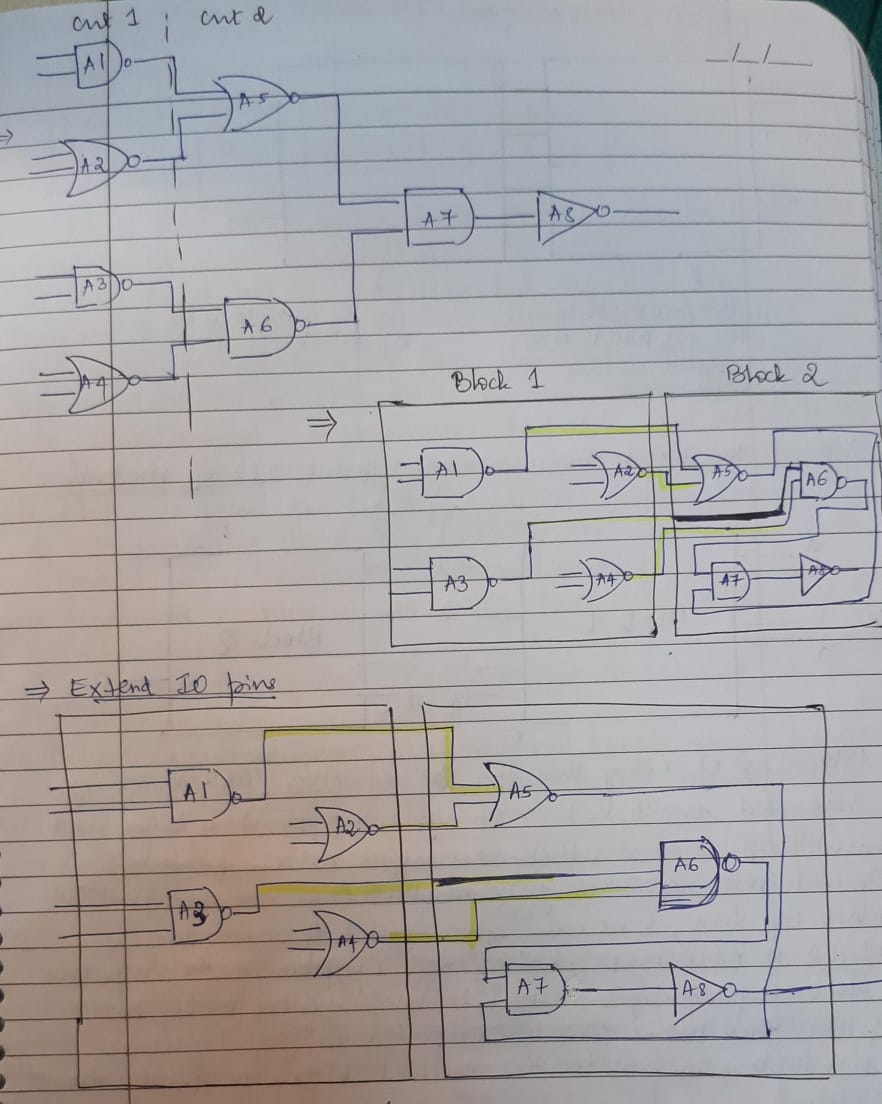 cut 1 ¦ cut 2
_/_/_
A1
A5
⇒
A2
A7
A8
A3
A6
A4
Block 1
Block 2
⇒
A1
A2
A5
A6
A3
A4
A7
A8
⇒ Extend IO pins
A1
A5
A2
A6
A3
A4
A7
A8